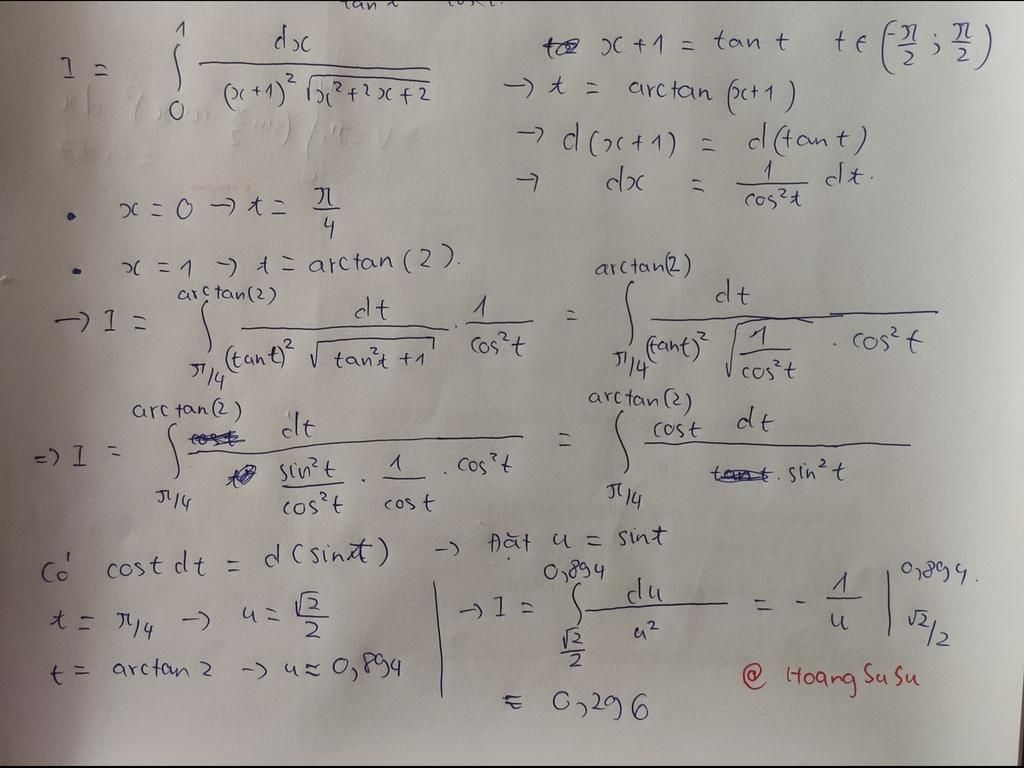 tan t cos t
I = ∫₀¹ dx / ((x+1)² √(x²+2x+2))
x+1 = tan t t ∈ (-π/2 ; π/2)
→ t = arctan (x+1)
→ d(x+1) = d(tan t)
→ dx = 1/cos²t dt.
• x = 0 → t = π/4
• x = 1 → t = arctan(2).
→ I = ∫_{π/4}^{arctan(2)} dt / ((tant)² √(tan²t +1)) · 1/cos²t = ∫_{π/4}^{arctan(2)} dt / ((tant)² √(1/cos²t) · cos²t)
=> I = ∫_{π/4}^{arctan(2)} dt / (sin²t/cos²t · 1/cost · cos²t) = ∫_{π/4}^{arctan(2)} cost dt / (· sin²t)
Có cost dt = d(sint) → Đặt u = sint
t = π/4 → u = √2/2
t = arctan 2 → u ≈ 0,894
→ I = ∫_{√2/2}^{0,894} du/u² = - 1/u |_{√2/2}^{0,894.}
≈ 0,296
@ HoangSuSu